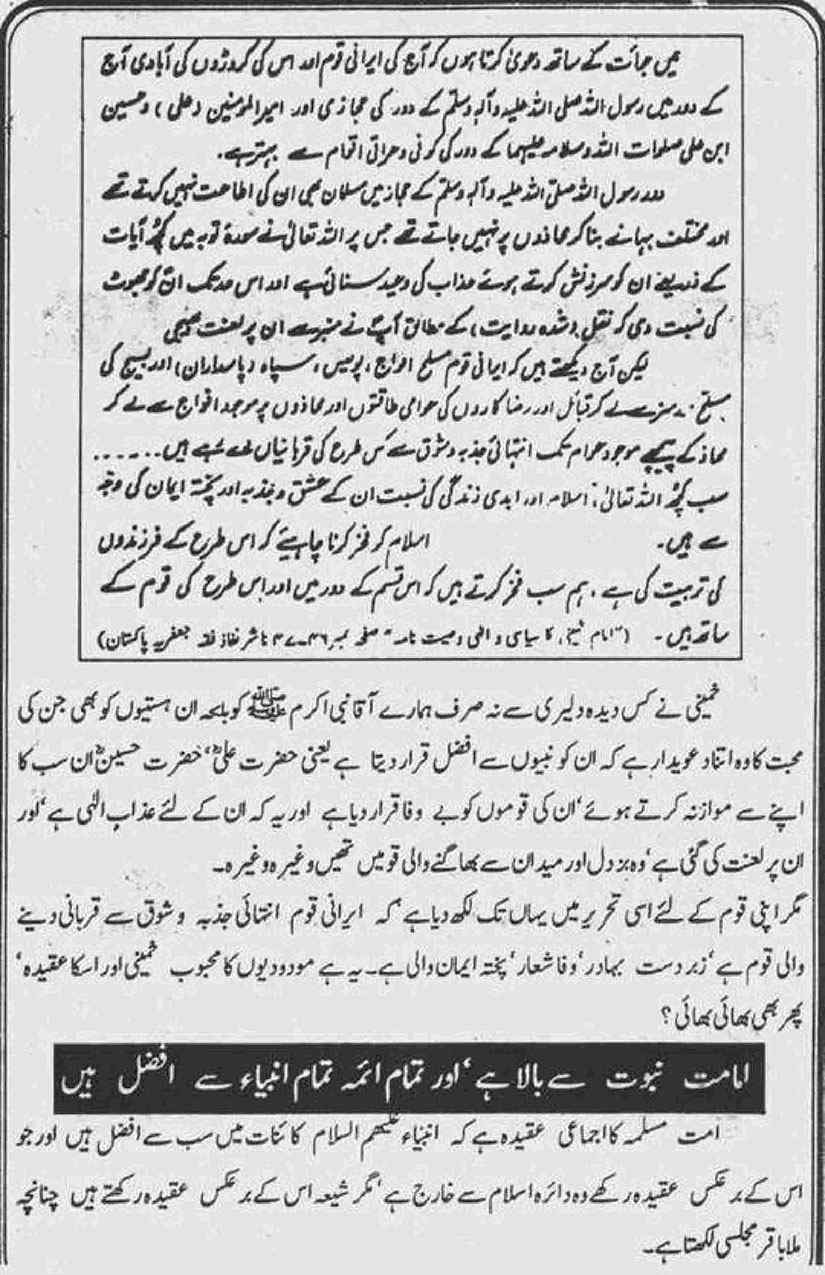 میں جرأت کے ساتھ دعویٰ کرتا ہوں کہ آج کی ایرانی قوم اور اس کی کروڑوں کی آبادی آج
کے دور میں رسول اللہ صلی اللہ علیہ وآلہ وسلم کے دور کی حجازی اور امیر المومنین (علی) و حسین
ابن علی صلوات اللہ وسلامہ علیہما کے دور کی کوفی و عراقی اقوام سے بہتر ہے۔
دور رسول اللہ صلی اللہ علیہ وآلہ وسلم کے حجاز میں مسلمان بھی ان کی اطاعت نہیں کرتے تھے
اور مختلف بہانے بنا کر محاذوں پر نہیں جاتے تھے جس پر اللہ تعالیٰ نے سورۃ توبہ میں کچھ آیات
کے ذریعے ان کو سرزنش کرتے ہوئے عذاب کی وعید سنائی ہے اور اس حد تک ان کو جھوٹ
کی نسبت دی کہ نقل (شدہ روایت) کے مطابق آپؐ نے منبر سے ان پر لعنت بھیجی
لیکن آج دیکھتے ہیں کہ ایرانی قوم مسلح افواج، پولیس، سپاہ (پاسداران) اور بسیج کی
مسلح سے لے کر قبائل اور رضا کاروں کی عوامی طاقتوں اور محاذوں پر موجود افواج سے لے کر
محاذ کے پیچھے موجود عوام تک انتہائی جذبہ و شوق سے کس طرح کی قربانیاں دے رہے ہیں......
سب کچھ اللہ تعالیٰ، اسلام اور ابدی زندگی کی نسبت ان کے عشق و جذبہ اور پختہ ایمان کی وجہ
سے ہیں۔ اسلام کو فخر کرنا چاہیئے کہ اس طرح کے فرزندوں
کی تربیت کی ہے، ہم سب فخر کرتے ہیں کہ اس قسم کے دور میں اور اس طرح کی قوم کے
ساتھ ہیں۔ ("امام خمینی کا سیاسی و الٰہی وصیت نامہ" صفحہ نمبر ۴۶-۴۷ ناشر نفاذ فقہ جعفریہ پاکستان)
خمینی نے کس دیدہ دلیری سے نہ صرف ہمارے آقا نبی اکرم ﷺ کو بلکہ ان ہستیوں کو بھی جن کی
محبت کا وہ اتنا دعویدار ہے کہ ان کو نبیوں سے افضل قرار دیتا ہے یعنی حضرت علیؓ، حضرت حسینؓ ان سب کا
اپنے سے موازنہ کرتے ہوئے، ان کی قوموں کو بے وفا قرار دیا ہے اور یہ کہ ان کے لئے عذاب الٰہی ہے، اور
ان پر لعنت کی گئی ہے، وہ بزدل اور میدان سے بھاگنے والی قومیں تھیں وغیرہ وغیرہ۔
مگر اپنی قوم کے لئے اسی تحریر میں یہاں تک لکھ دیا ہے، کہ ایرانی قوم انتہائی جذبہ و شوق سے قربانی دینے
والی قوم ہے، زبردست بہادر، وفا شعار، پختہ ایمان والی ہے۔ یہ ہے مودودیوں کا محبوب خمینی اور اسکا عقیدہ،
پھر بھی بھائی بھائی؟
امامت نبوت سے بالا ہے، اور تمام ائمہ تمام انبیاء سے افضل ہیں
امت مسلمہ کا اجماعی عقیدہ ہے کہ انبیاء علیھم السلام کائنات میں سب سے افضل ہیں اور جو
اس کے برعکس عقیدہ رکھے وہ دائرہ اسلام سے خارج ہے، مگر شیعہ اس کے برعکس عقیدہ رکھتے ہیں چنانچہ
ملا باقر مجلسی لکھتا ہے۔